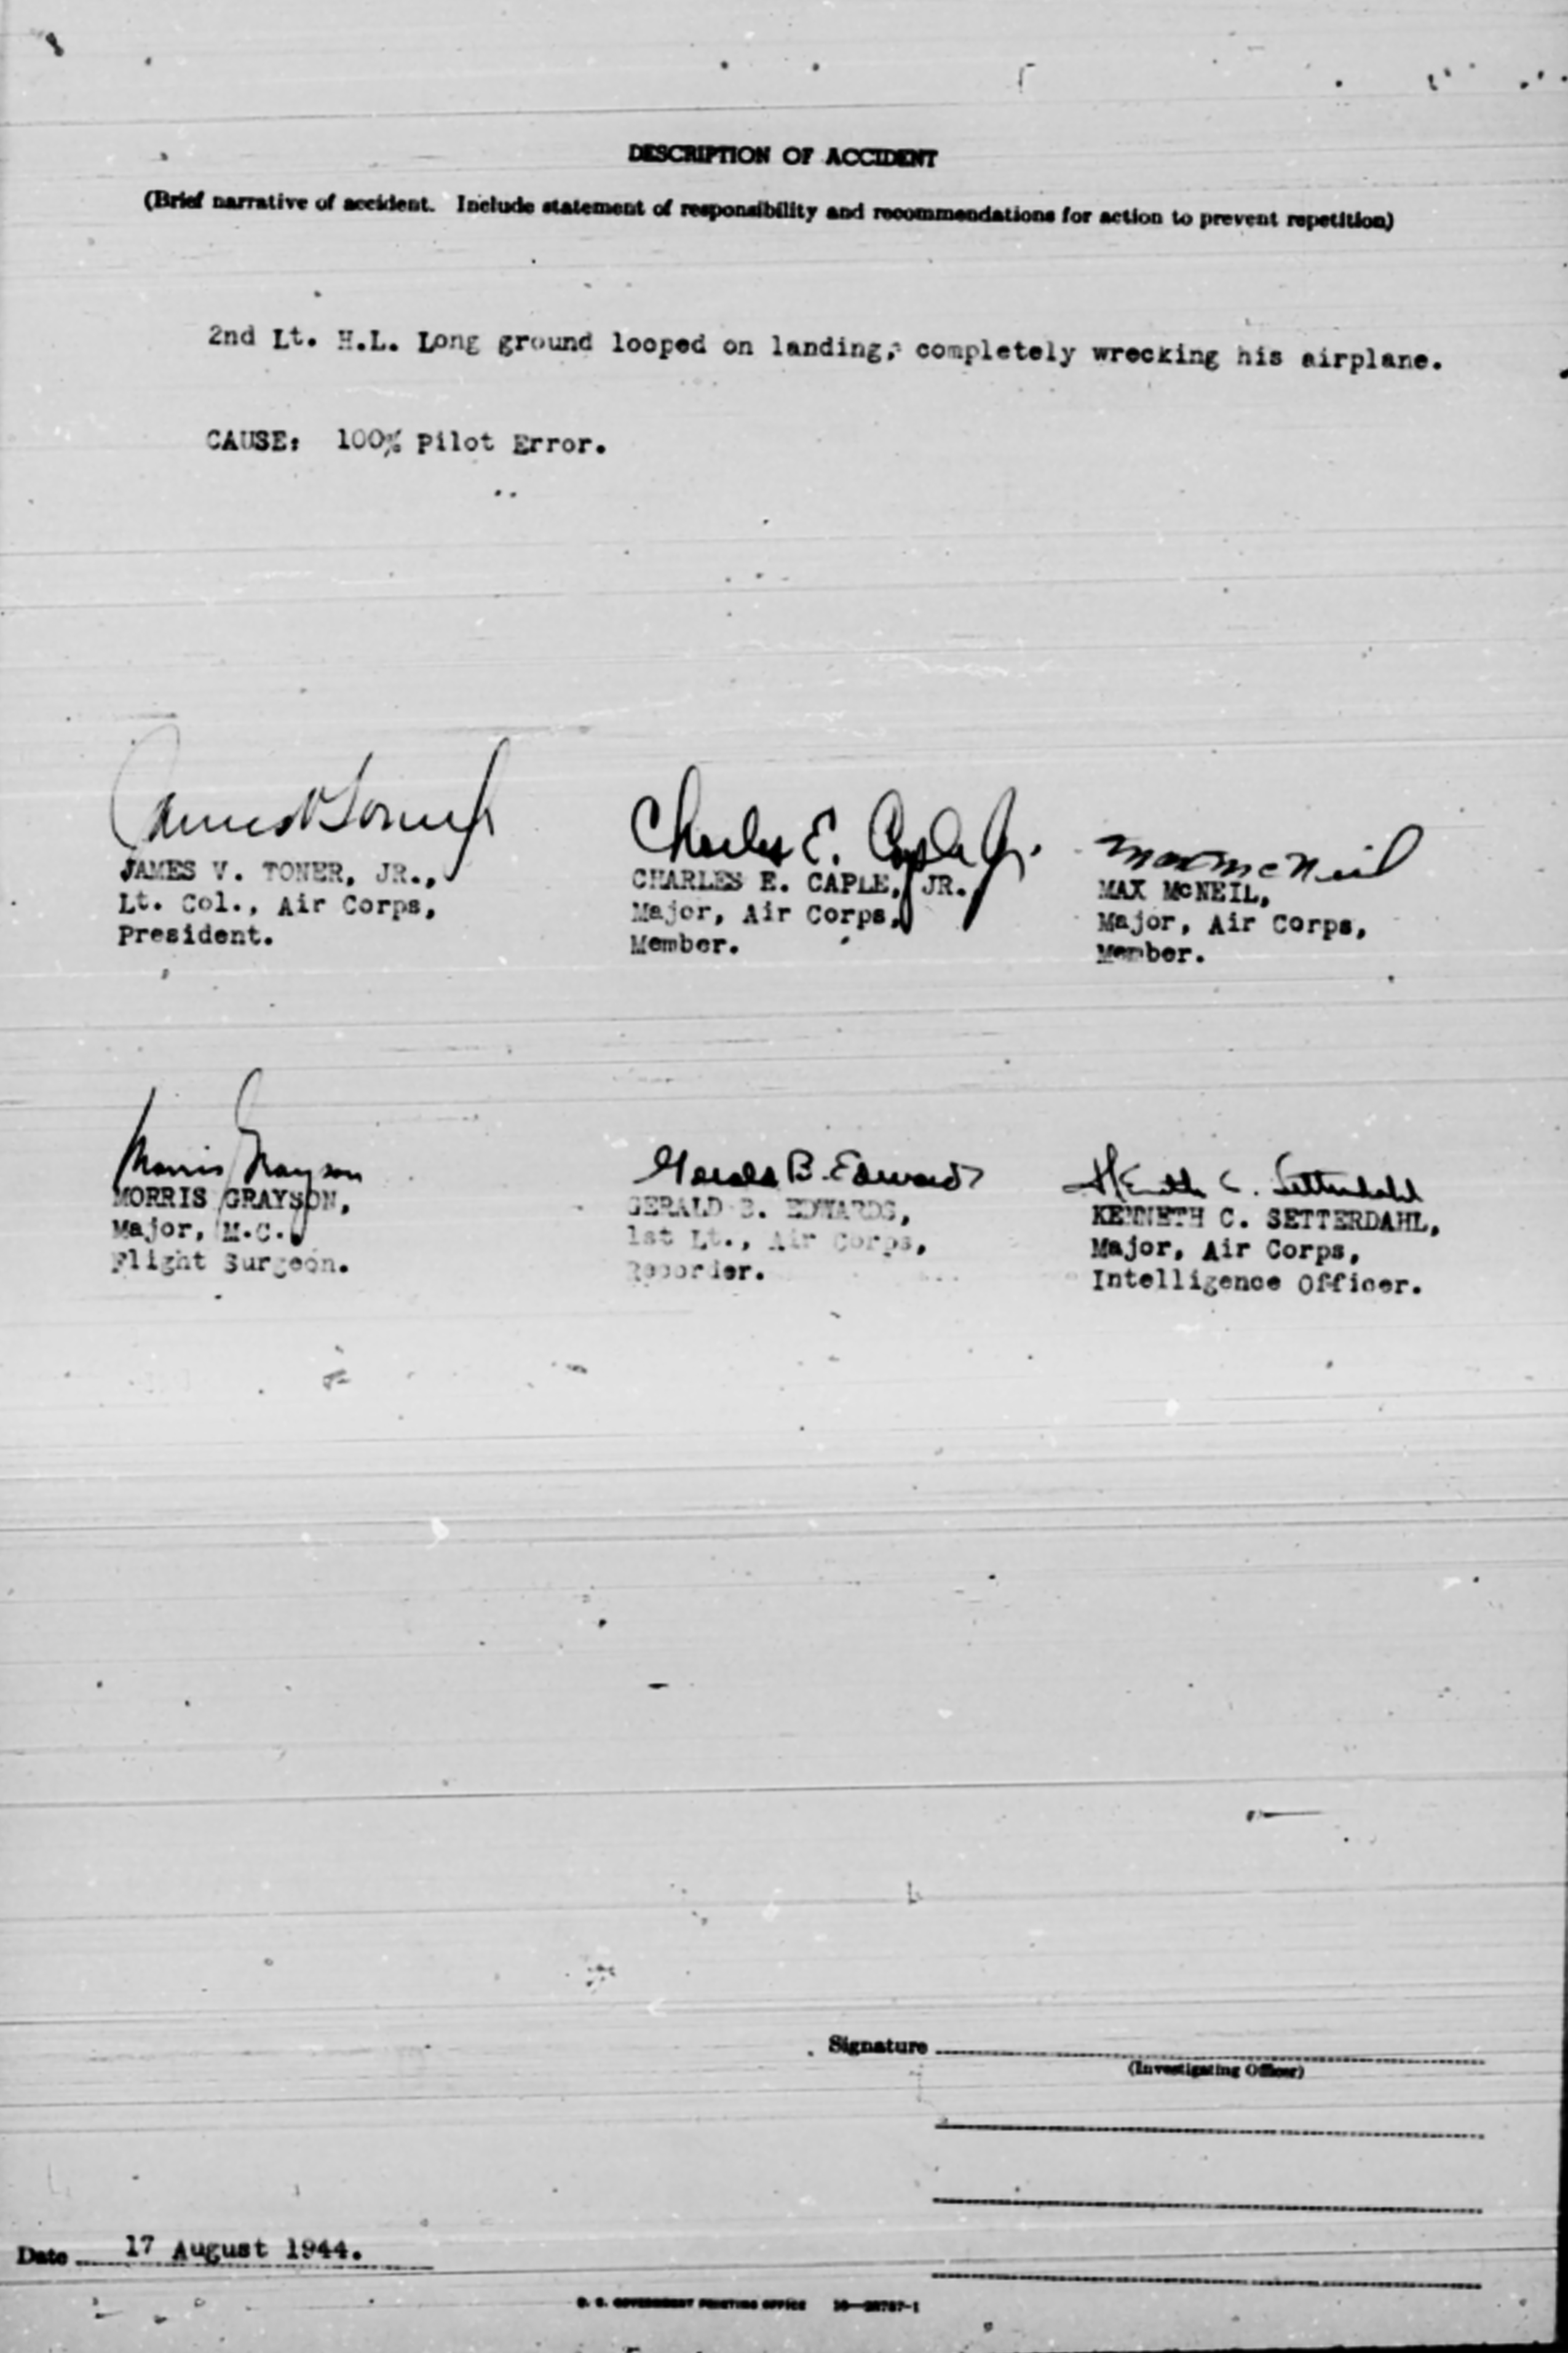 DESCRIPTION OF ACCIDENT
(Brief narrative of accident. Include statement of responsibility and recommendations for action to prevent repetition)
2nd Lt. H.L. Long ground looped on landing, completely wrecking his airplane.
CAUSE: 100% Pilot Error.
James V Toner Jr
Charles E. Caple Jr.
Max McNeil
JAMES V. TONER, JR.,
Lt. Col., Air Corps,
President.
CHARLES E. CAPLE, JR.
Major, Air Corps,
Member.
MAX McNEIL,
Major, Air Corps,
Member.
Morris Grayson
Gerald B. Edwards
Kenneth C. Setterdahl
MORRIS GRAYSON,
Major, M.C.
Flight Surgeon.
GERALD B. EDWARDS,
1st Lt., Air Corps,
Recorder.
KENNETH C. SETTERDAHL,
Major, Air Corps,
Intelligence Officer.
Signature
(Investigating Officer)
Date 17 August 1944.
U. S. GOVERNMENT PRINTING OFFICE